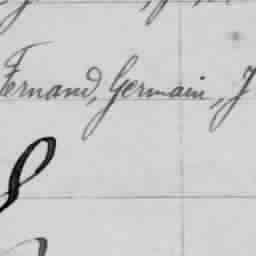 Fernand, Germain, J